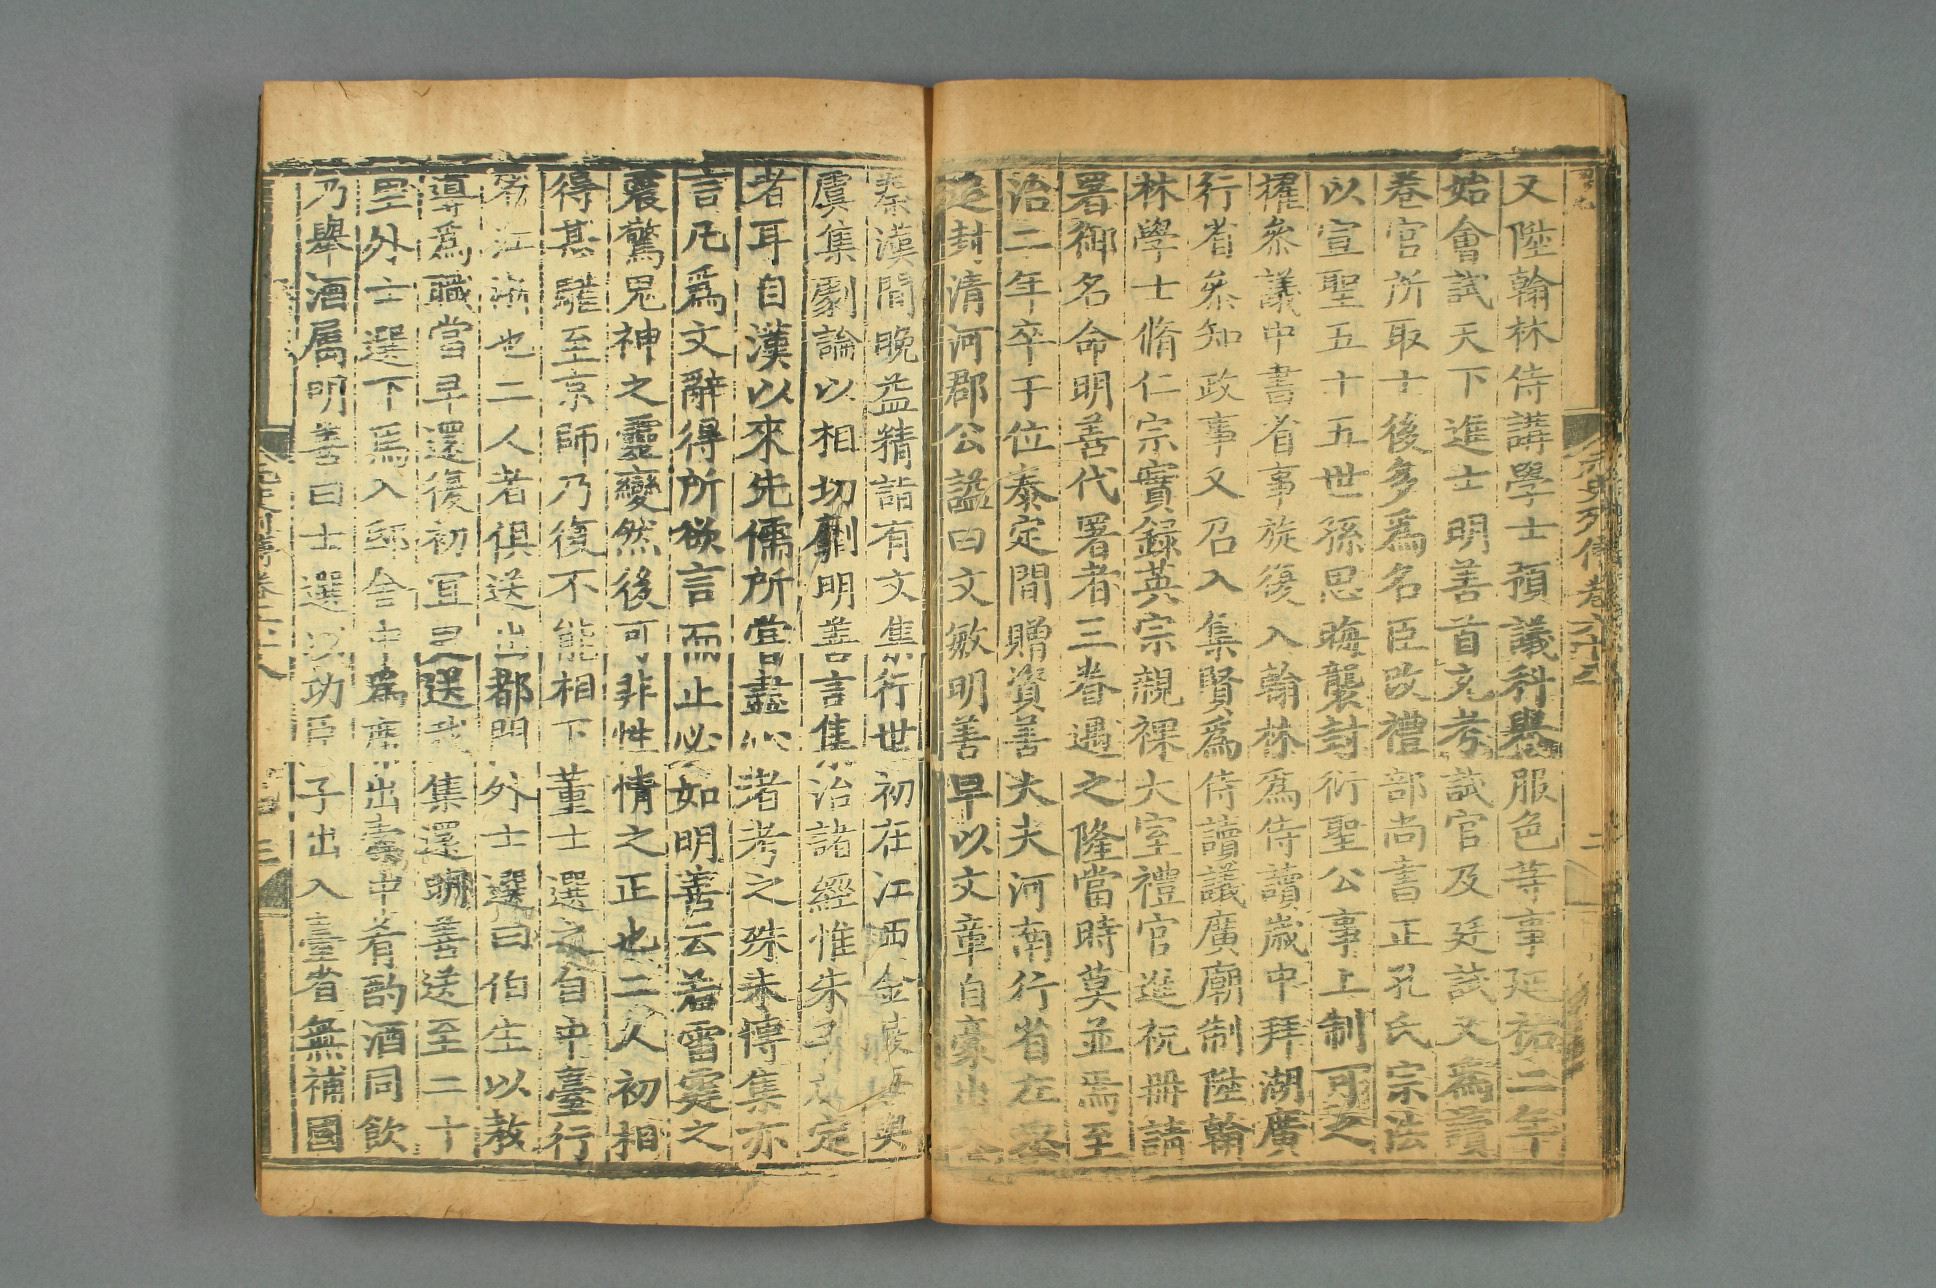 又陞翰林侍講學士預議科舉服色等事延祐二年
始會試天下進士明善首充考試官及廷試又爲讀
卷官所取士後多爲名臣改禮部尚書正孔氏宗法
以宣聖五十五世孫思晦襲封衍聖公事上制可之
擢叅議中書省事旋復入翰林爲侍讀歲中拜湖廣
行省叅知政事又召入集賢爲侍讀議廣廟制陞翰
林學士脩仁宗實録英宗親祼大室禮官進祝冊請
署御名命明善代署者三眷遇之隆當時莫並焉至
治二年卒于位泰定間贈資善大夫河南行省左丞
追封清河郡公諡曰文敏明善早以文章自豪出入
秦漢間晚益精詣有文集行世初在江西金陵每與
虞集劇論以相切劘明善言集治諸經惟朱子所定
者耳自漢以來先儒所嘗盡心者考之殊未博集亦
言凡爲文辭得所欲言而止必如明善云若雷霆之
震驚鬼神之靈變然後可非性情之正也二人初相
得甚驩至京師乃復不能相下董士選之自中臺行
省江浙也二人者俱送出都門外士選曰伯生以教
導爲職當早還復初宜更送我集還明善送至二十
里外士選下馬入邸舍中爲席出橐中肴酌酒同飲
乃舉酒屬明善曰士選以功臣子出入臺省無補國
元史列傳卷六十八
三
元史列傳卷六十八
二